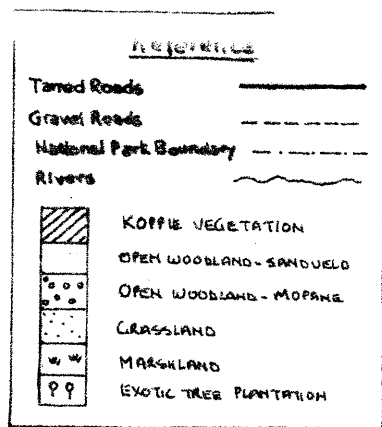 Reference
Tarred Roads
Gravel Roads
National Park Boundary
Rivers
KOPPIE VEGETATION
OPEN WOODLAND - SANDVELD
OPEN WOODLAND - MOPANE
GRASSLAND
MARSHLAND
EXOTIC TREE PLANTATION